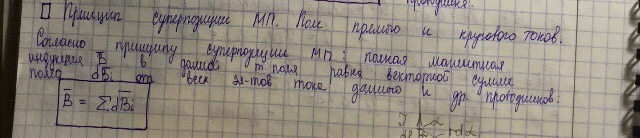 Принцип суперпозиции МП. Поле прямого и кругового токов.
Согласно принципу суперпозиции МП: полная магнитная
индукция B̄ в данной т. поля равна векторной сумме
полей dB̄i от всех эл-тов тока данного и др. проводников:
B̄ = ΣdB̄i